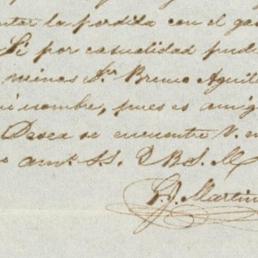 la perdida con el ga
Si por casualidad pud
minas Sr. Bruno Aguil
mi nombre, pues es amig
Desea se encuentre V.
am. S.S. Q B S. M
Martin